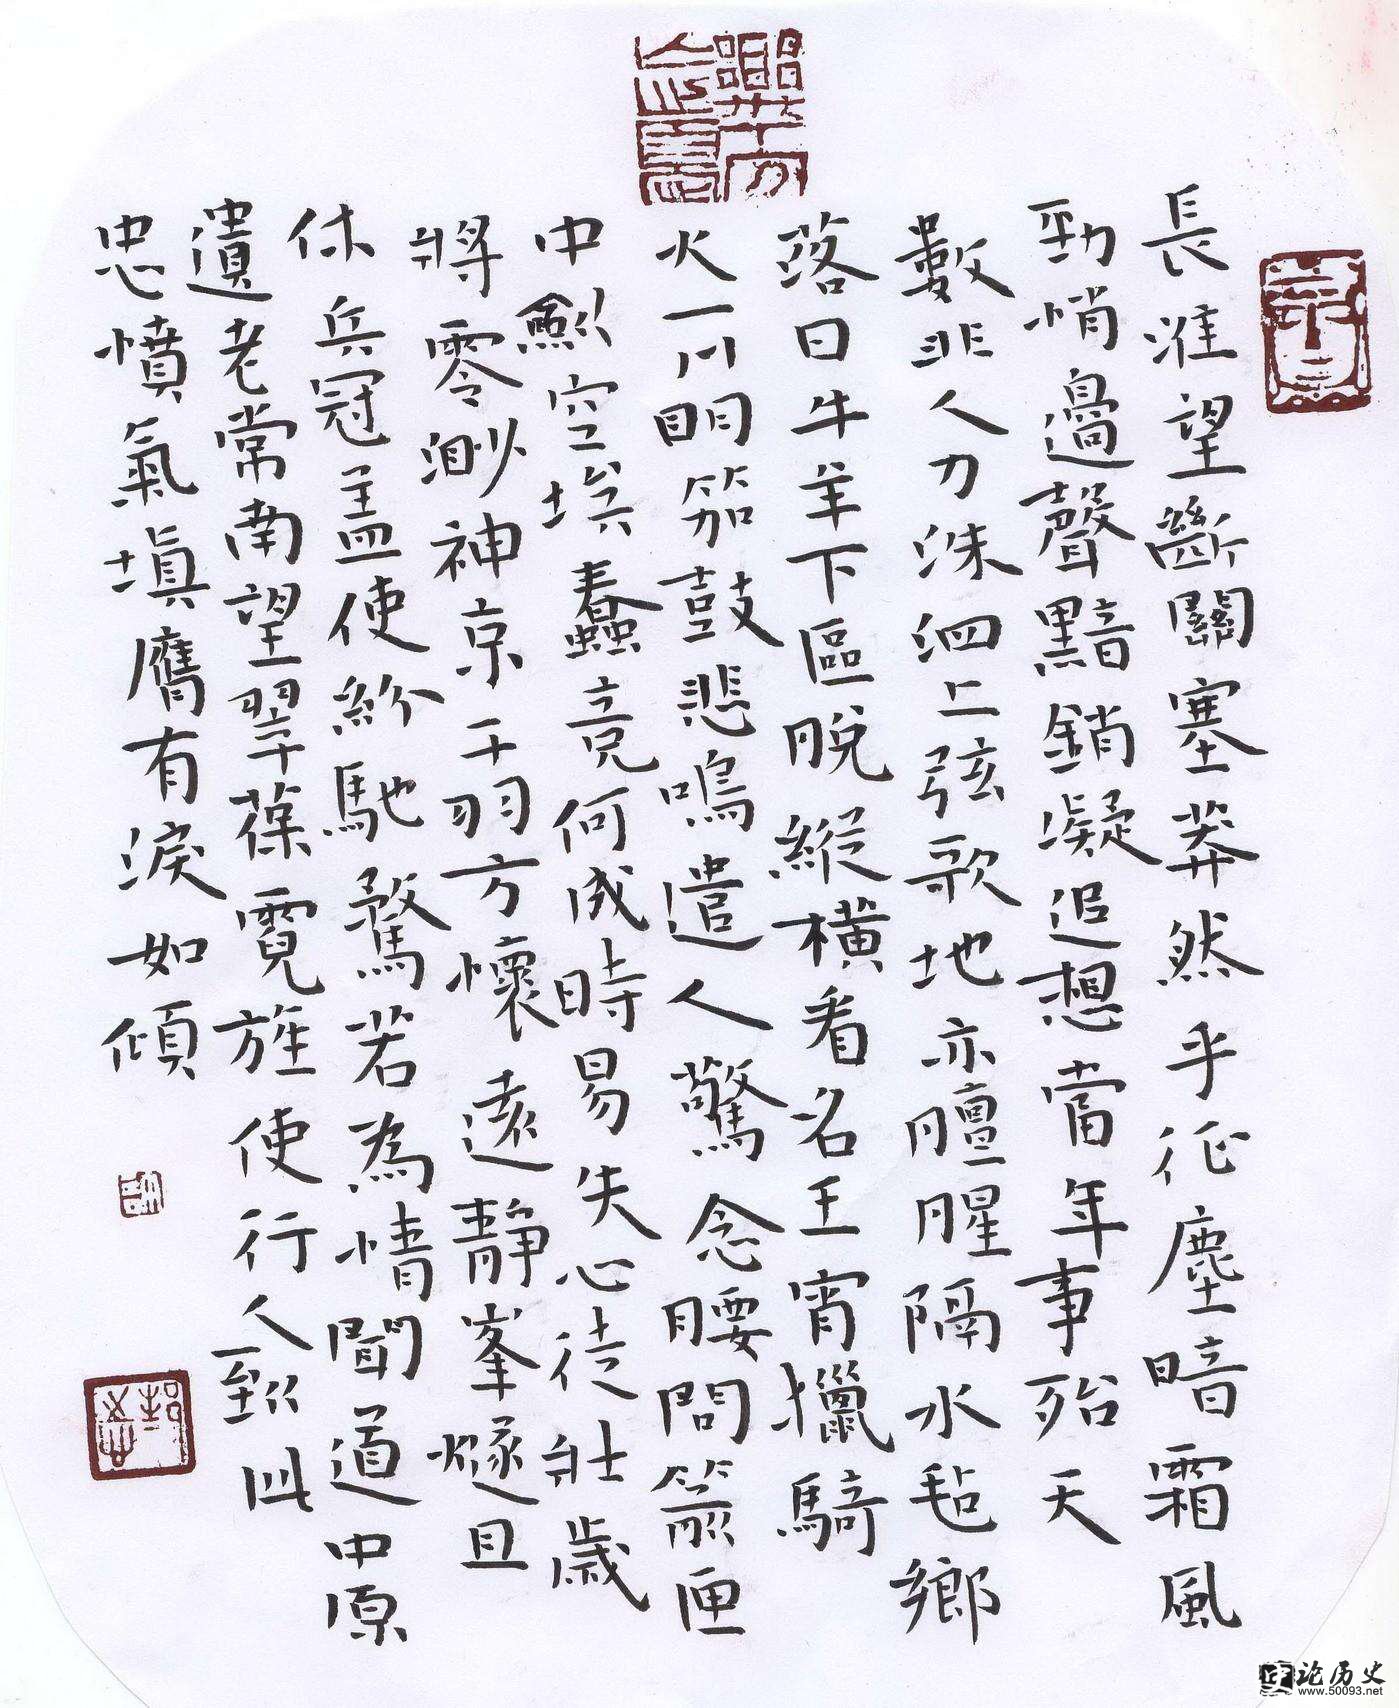 長淮望斷關塞莽然乎征塵暗霜風
勁悄邊聲黯銷凝追想當年事殆天
數非人力洙泗上弦歌地亦膻腥隔水毡鄉
落日牛羊下區脫縱橫看名王宵獵騎
火一川明笳鼓悲鳴遣人驚念腰間箭匣
中劍空埃蠹竟何成時易失心徒壯歲
將零渺神京干羽方懷遠靜峯燧且
休兵冠盖使紛馳騖若為情聞道中原
遺老常南望翠葆霓旌使行人到此
忠憤氣填膺有淚如傾
论历史
www.50093.net